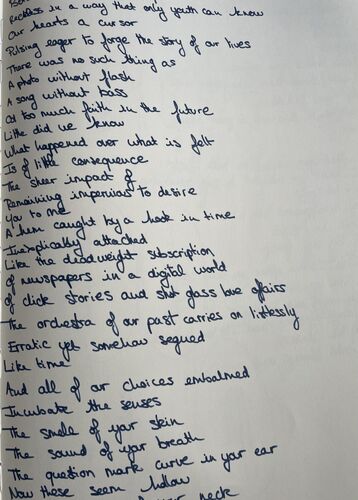 Reckless in a way that only youth can know
Our hearts a cursor
Pulsing eager to forge the story of our lives
There was no such thing as
A photo without flash
A song without bass
Or too much faith in the future
Little did we know
What happened over what is felt
Is of little consequence
The sheer impact of
Remaining impervious to desire
You to me
A hem caught by a hook in time
Inexplicably attached
Like the deadweight subscription
Of newspapers in a digital world
Of click stories and shot glass love affairs
The orchestra of our past carries on listlessly
Erratic yet somehow segued
Like time
And all of our choices embalmed
Incubate the senses
The smell of your skin
The sound of your breath
The question mark curve in your ear
Now these seem hollow
neck